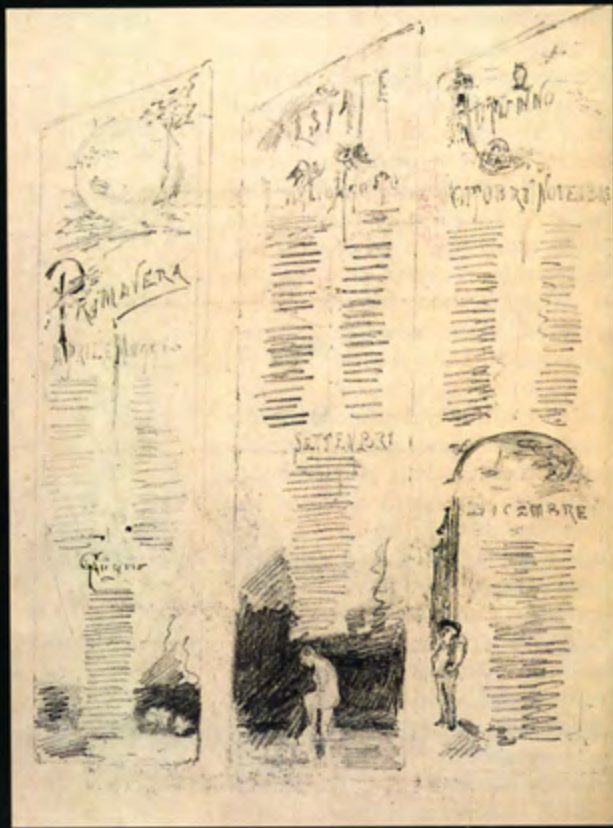 PRIMAVERA
APRILE MAGGIO
GIUGNO
ESTATE
AGOSTO
SETTEMBRE
AUTUNNO
OTTOBRE NOVEMBRE
DICEMBRE